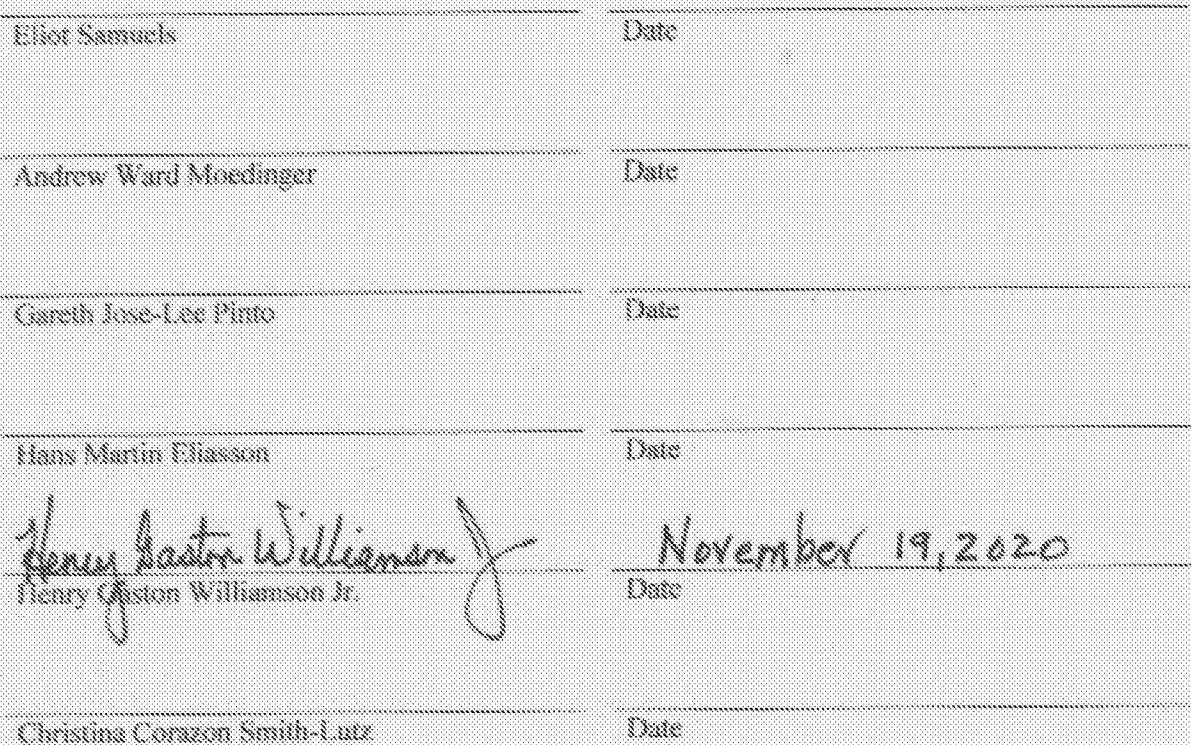 Eliot Samuels Date
Andrew Ward Moedinger Date
Gareth Jose-Lee Pinto Date
Hans Martin Eliasson Date
Henry Gaston Williamson Jr November 19, 2020
Henry Gaston Williamson Jr. Date
Christina Corazon Smith-Lutz Date